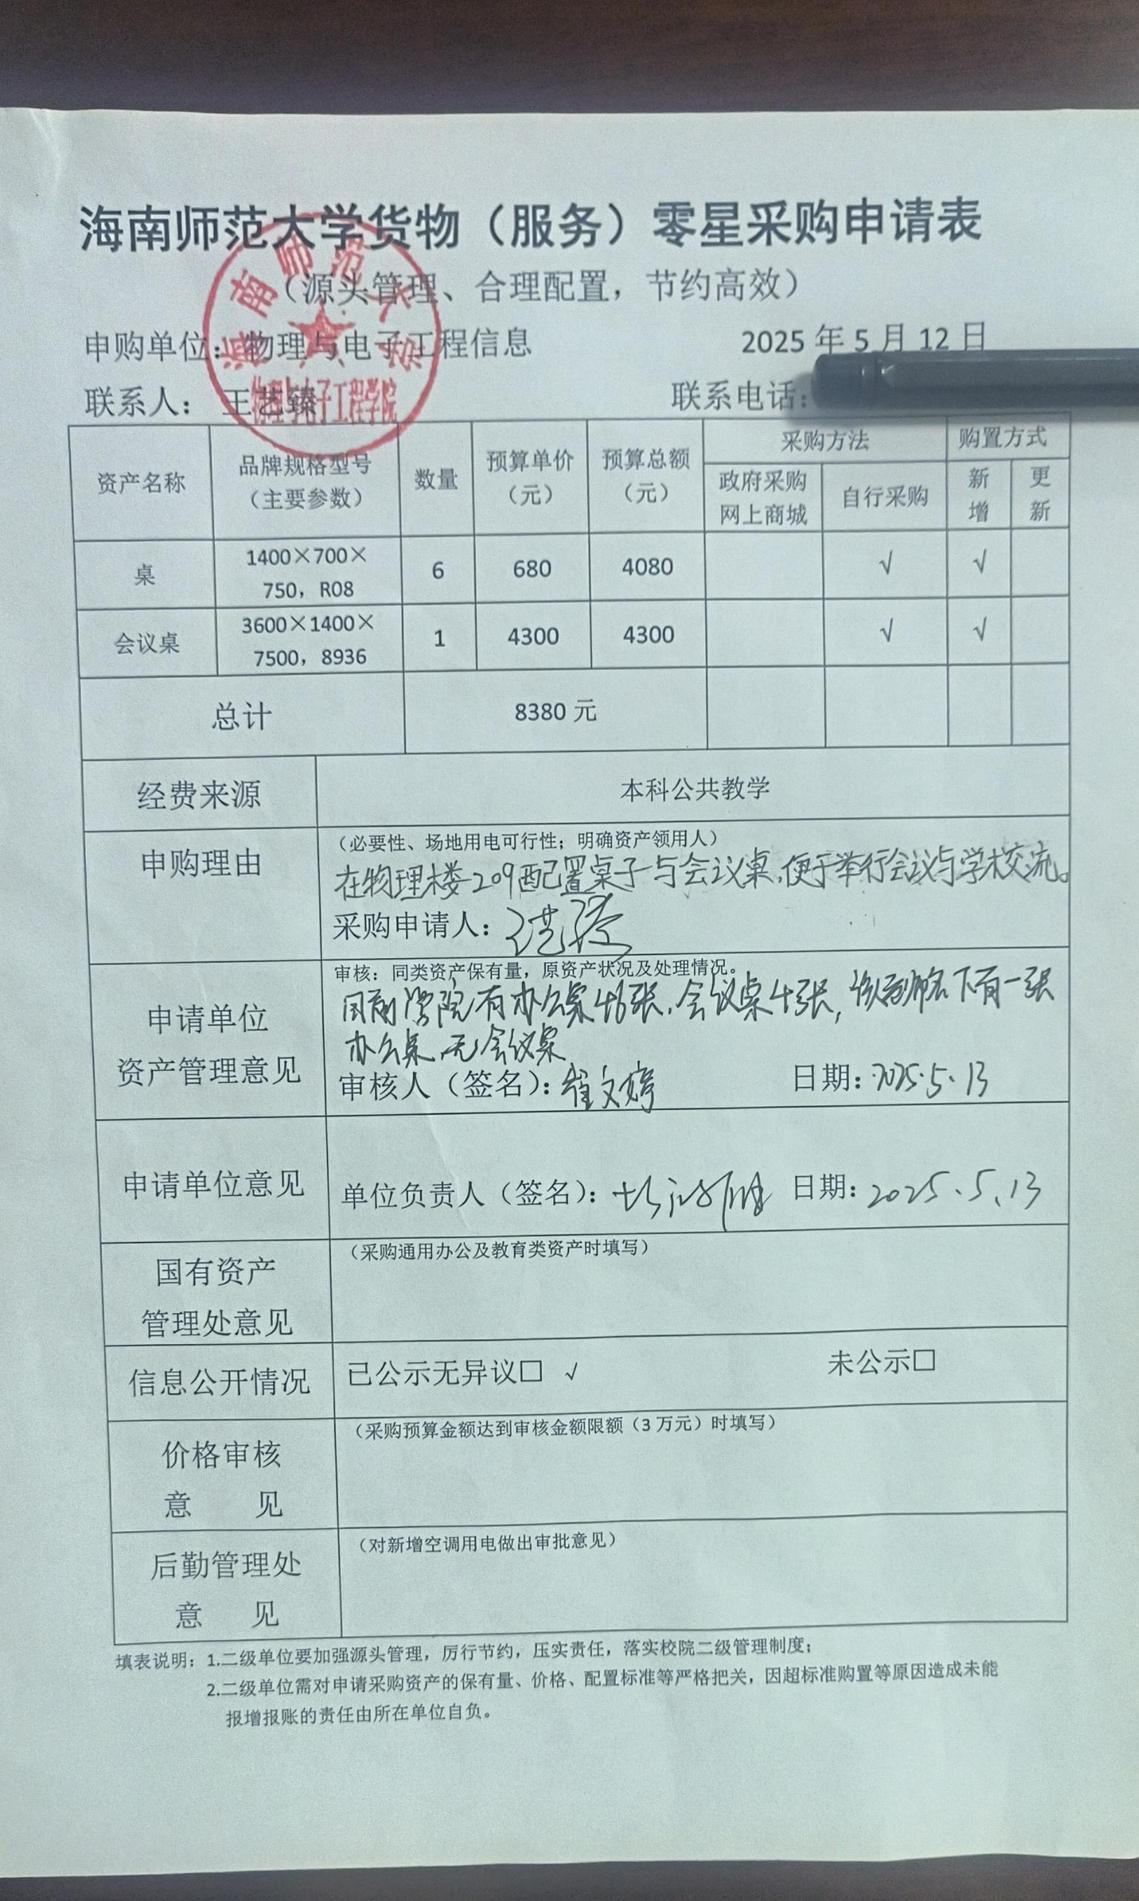 海南师范大学货物（服务）零星采购申请表
（源头管理、合理配置，节约高效）
申购单位：物理与电子工程信息 2025 年 5 月 12 日
联系人： 王艺臻 联系电话：
海南师范大学
物理与电子工程学院
资产名称 品牌规格型号（主要参数） 数量 预算单价（元） 预算总额（元） 采购方法 购置方式
政府采购网上商城 自行采购 新增 更新
桌 1400×700×750，R08 6 680 4080 √ √
会议桌 3600×1400×7500，8936 1 4300 4300 √ √
总计 8380 元
经费来源 本科公共教学
申购理由 （必要性、场地用电可行性；明确资产领用人）
在物理楼209配置桌子与会议桌，便于举行会议与学术交流。
采购申请人：
申请单位资产管理意见 审核：同类资产保有量，原资产状况及处理情况。
目前学院有办公桌46张，会议桌4张，该教师名下有一张
办公桌，无会议桌
审核人（签名）：崔文婷 日期：2025.5.13
申请单位意见 单位负责人（签名）： 日期：2025.5.13
国有资产管理处意见 （采购通用办公及教育类资产时填写）
信息公开情况 已公示无异议□ √ 未公示□
价格审核意 见 （采购预算金额达到审核金额限额（3 万元）时填写）
后勤管理处意 见 （对新增空调用电做出审批意见）
填表说明：1.二级单位要加强源头管理，厉行节约，压实责任，落实校院二级管理制度；
2.二级单位需对申请采购资产的保有量、价格、配置标准等严格把关，因超标准购置等原因造成未能
报增报账的责任由所在单位自负。